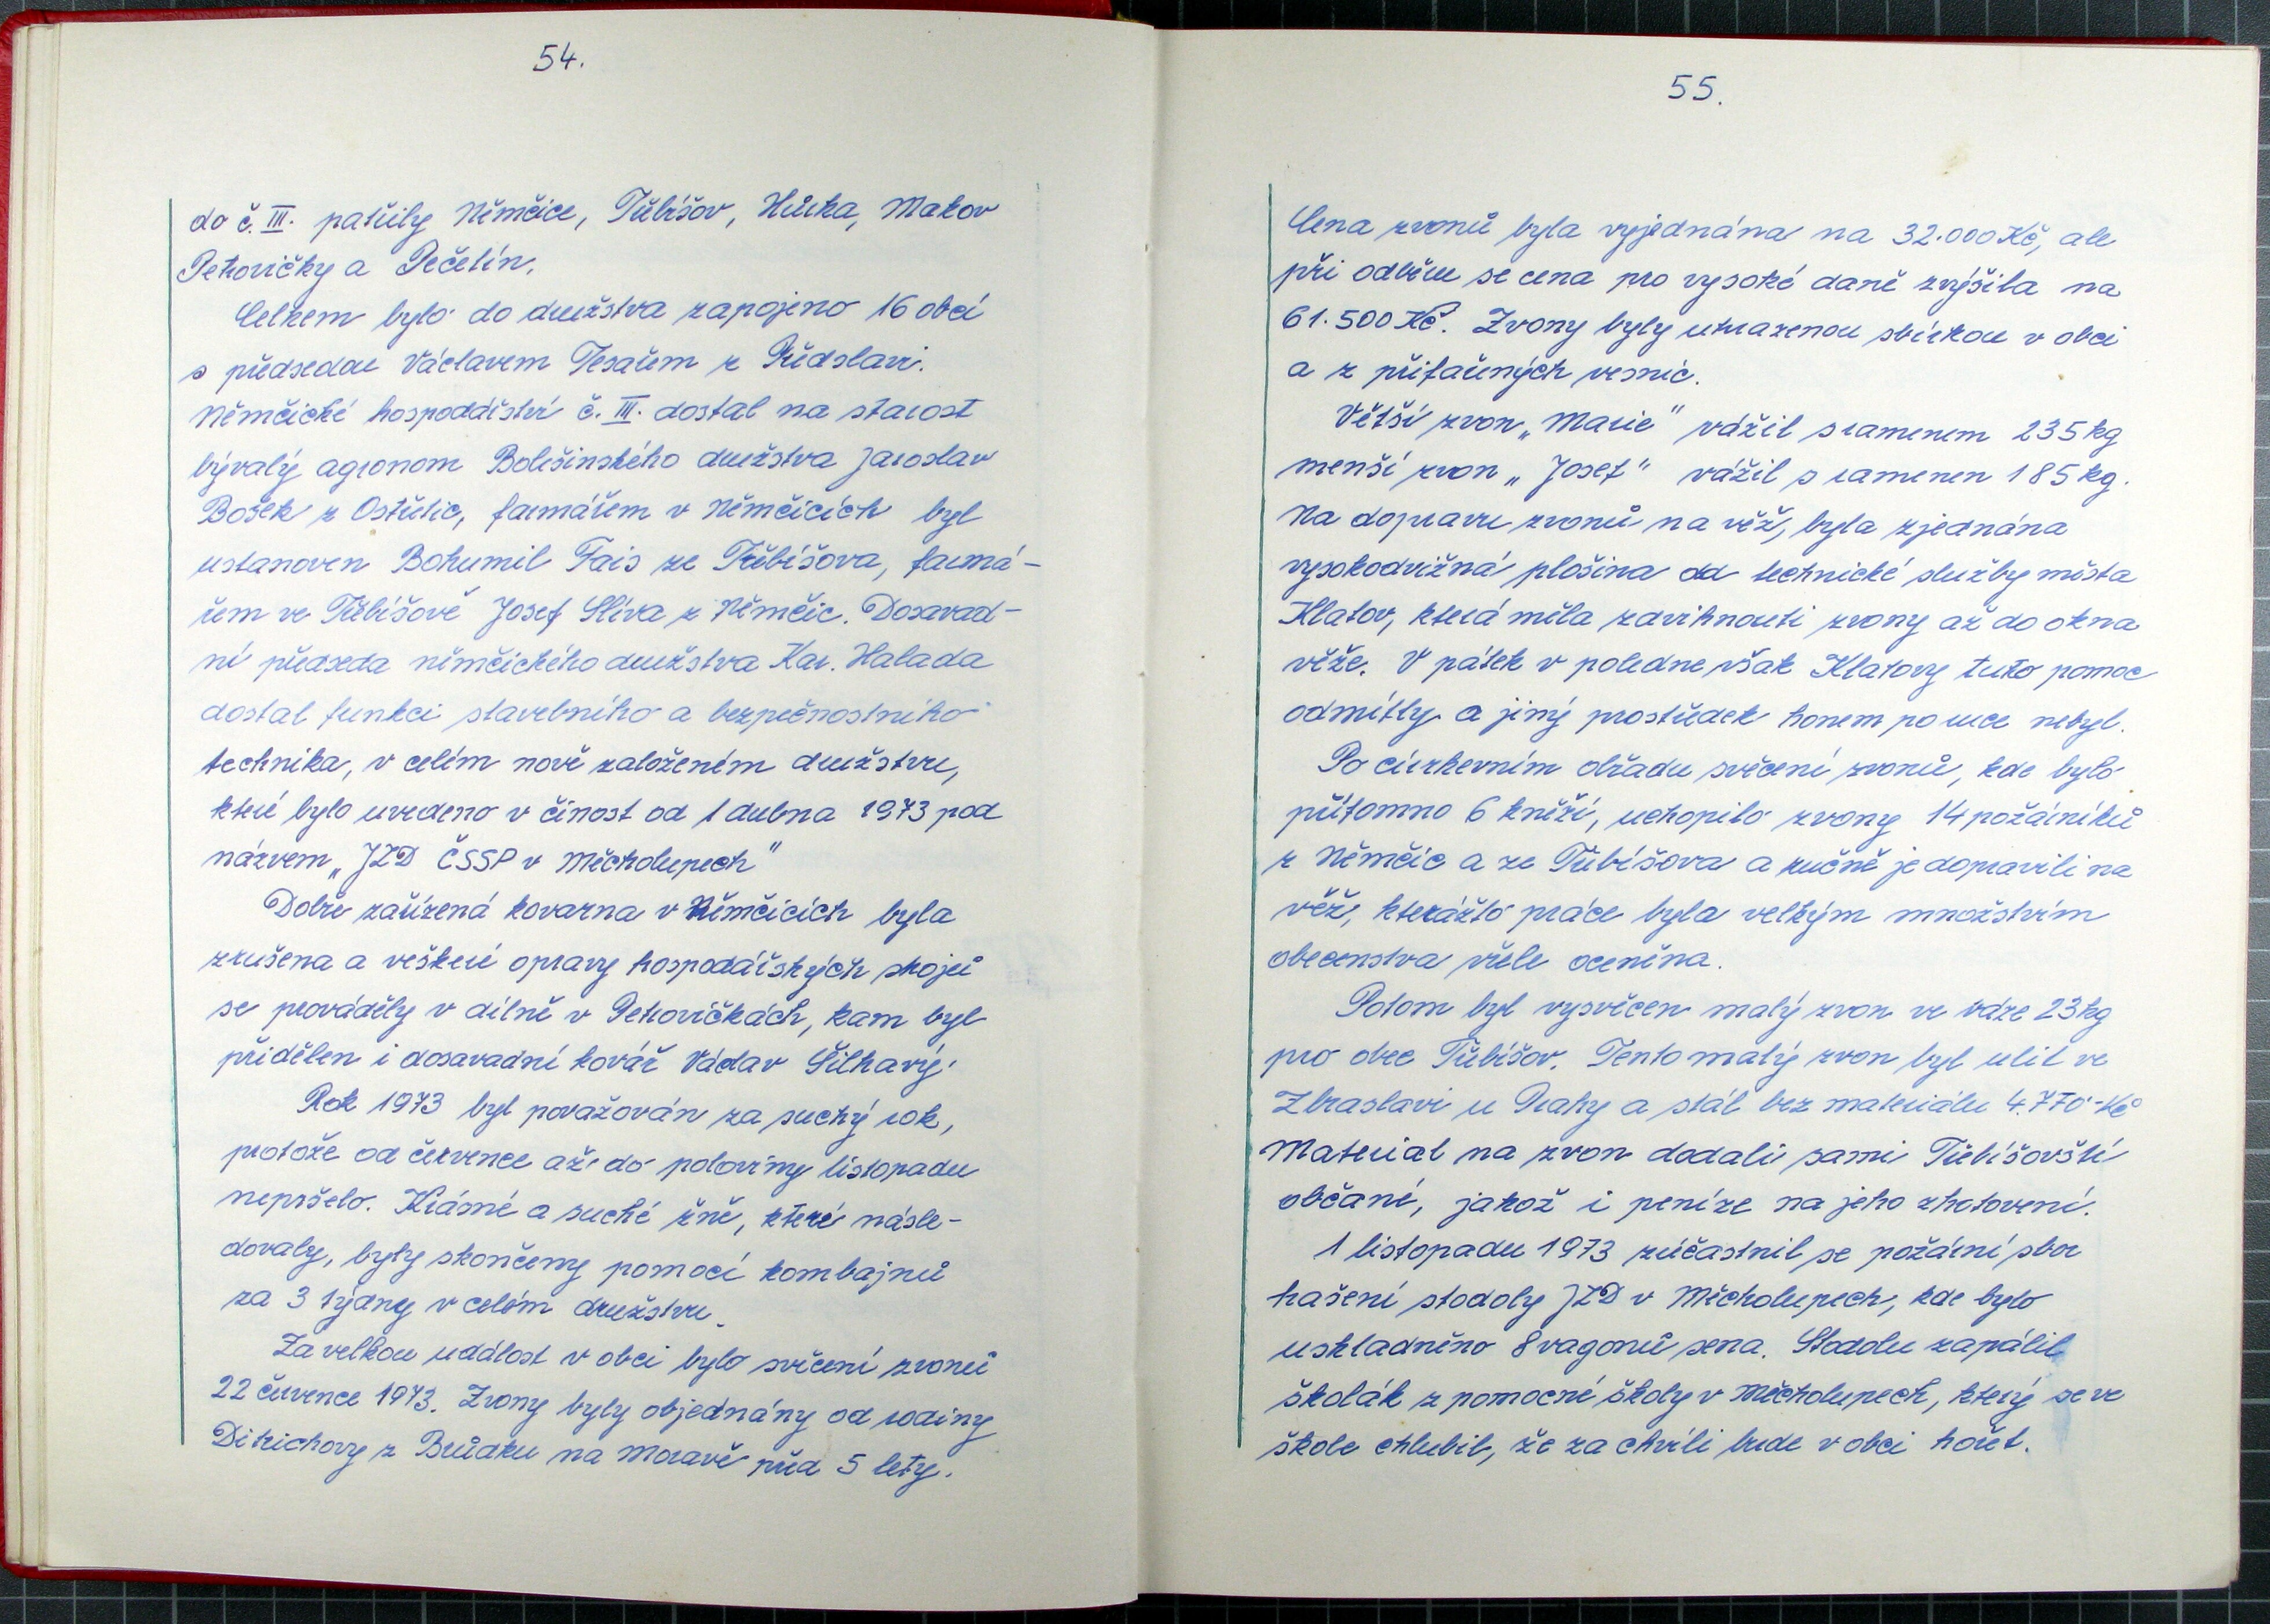 54.
do č. III. patřily Němčice, Třebíšov, Hůrka, Makov
Petrovičky a Pečetín.
Celkem bylo do družstva zapojeno 16 obcí
s předsedou Václavem Tesařem z Předslavi.
Němčické hospodářství č. III. dostal na starost
bývalý agronom Bolešinského družstva Jaroslav
Bošek z Ostřetic, farmářem v Němčicích byl
ustanoven Bohumil Fais ze Třebíšova, farmá-
řem ve Třebíšově Josef Slíva z Němčic. Dosavad-
ní předseda němčického družstva Kar. Halada
dostal funkci stavebního a bezpečnostního
technika, v celém nově založeném družstvu,
které bylo uvedeno v činost od 1 dubna 1973 pod
názvem „JZD ČSSP v Měcholupech"
Dobře zařízená kovarna v Němčicích byla
zrušena a veškeré opravy hospodářských strojů
se prováděly v dílně v Petrovičkách, kam byl
přidělen i dosavadní kovář Václav Šilhavý.
Rok 1973 byl považován za suchý rok,
protože od července až do poloviny listopadu
nepršelo. Krásné a suché žně, které násle-
dovaly, byly skončeny pomocí kombajnů
za 3 týdny v celém družstvu.
Za velkou událost v obci bylo svěcení zvonů
22 července 1973. Zvony byly objednány od rodiny
Ditrichovy z Brůdku na Moravě před 5 lety.
55.
Cena zvonů byla vyjednána na 32.000 Kč, ale
při odběru se cena pro vysoké daně zvýšila na
61.500 Kč. Zvony byly uhrazenou sbírkou v obci
a z přifařených vesnic.
Větší zvon „Marie" vážil s ramenem 235 kg
menší zvon „Josef" vážil s ramenen 185 kg.
Na dopravu zvonů na věž, byla zjednána
vysokodvižná plošina od technické služby města
Klatov, která měla zdvihnouti zvony až do okna
věže. V pátek v poledne však Klatovy tuto pomoc
odmítly a jiný prostředek honem po ruce nebyl.
Po církevním obřadu svěcení zvonů, kde bylo
přítomno 6 kněží, uchopilo zvony 14 požárníků
z Němčic a ze Třebíšova a ručně je dopravili na
věž, kterážto práce byla velkým množstvím
obecenstva vřele oceněna.
Potom byl vysvěcen malý zvon ve váze 23 kg
pro obec Třebíšov. Tento malý zvon byl ulit ve
Zbraslavi u Prahy a stál bez materiálu 4.770 - Kč
Material na zvon dodali sami Třebíšovští
občané, jakož i peníze na jeho zhotovení.
1 listopadu 1973 zúčastnil se požární sbor
hašení stodoly JZD v Měcholupech, kde bylo
uskladněno 8 vagonů sena. Stodolu zapálil
školák z pomocné školy v Měcholupech, který se ve
škole chlubil, že za chvíli bude v obci hořet.